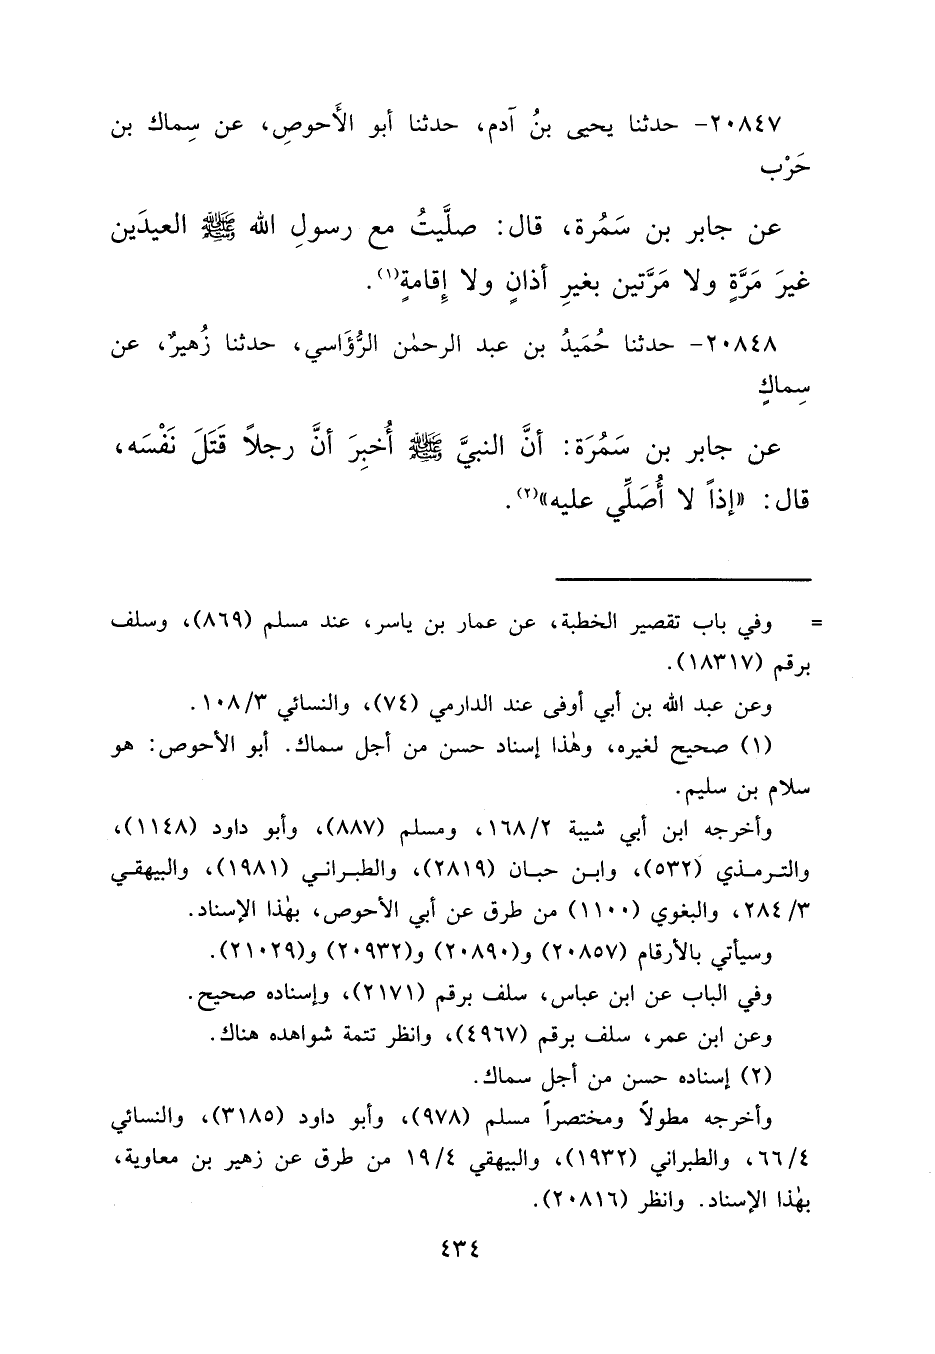 ٢٠٨٤٧- حدثنا يحيى بنُ آدم، حدثنا أبو الأَحوصِ، عن سِماك بن
حَرْب
عن جابر بن سَمُرة، قال: صلَّيتُ مع رسولِ الله ﷺ العيدَين
غيرَ مَرَّةٍ ولا مَرَّتين بغيرِ أذانٍ ولا إِقامةٍ(١).
٢٠٨٤٨- حدثنا حُمَيدُ بن عبد الرحمٰن الرُّؤَاسي، حدثنا زُهيرٌ، عن
سِماكٍ
عن جابر بن سَمُرَة: أنَّ النبيَّ ﷺ أُخبِرَ أنَّ رجلاً قَتَلَ نَفْسَه،
قال: «إذاً لا أُصَلِّي عليه»(٢).
= وفي باب تقصير الخطبة، عن عمار بن ياسر، عند مسلم (٨٦٩)، وسلف
برقم (١٨٣١٧).
وعن عبد الله بن أبي أوفى عند الدارمي (٧٤)، والنسائي ١٠٨/٣.
(١) صحيح لغيره، وهٰذا إسناد حسن من أجل سماك. أبو الأحوص: هو
سلام بن سليم.
وأخرجه ابن أبي شيبة ١٦٨/٢، ومسلم (٨٨٧)، وأبو داود (١١٤٨)،
والترمذي (٥٣٢)، وابن حبان (٢٨١٩)، والطبراني (١٩٨١)، والبيهقي
٢٨٤/٣، والبغوي (١١٠٠) من طرق عن أبي الأحوص، بهٰذا الإسناد.
وسيأتي بالأرقام (٢٠٨٥٧) و(٢٠٨٩٠) و(٢٠٩٣٢) و(٢١٠٢٩).
وفي الباب عن ابن عباس، سلف برقم (٢١٧١)، وإسناده صحيح.
وعن ابن عمر، سلف برقم (٤٩٦٧)، وانظر تتمة شواهده هناك.
(٢) إسناده حسن من أجل سماك.
وأخرجه مطولاً ومختصراً مسلم (٩٧٨)، وأبو داود (٣١٨٥)، والنسائي
٦٦/٤، والطبراني (١٩٣٢)، والبيهقي ١٩/٤ من طرق عن زهير بن معاوية،
بهٰذا الإسناد. وانظر (٢٠٨١٦).
٤٣٤